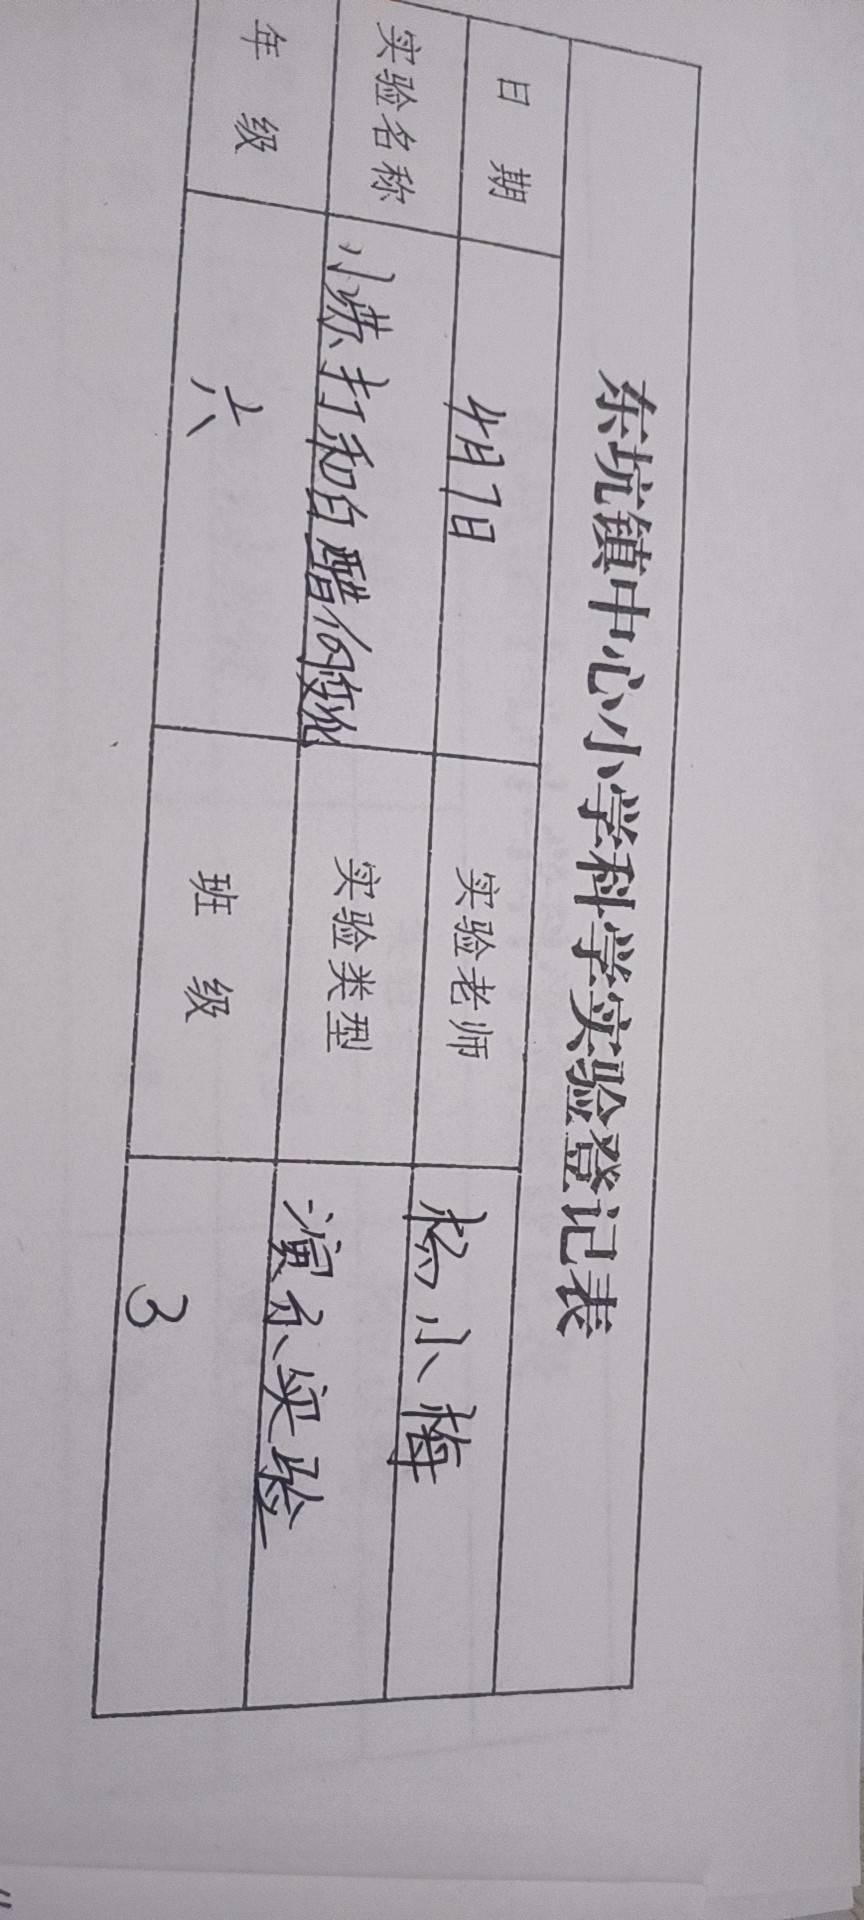 东坑镇中心小学科学实验登记表
日 期 4月7日 实验老师 杨小梅
实验名称 小苏打和白醋的变化 实验类型 演示实验
年 级 六 班 级 3